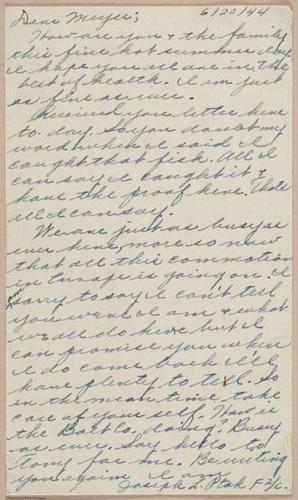 Dear Meyer; 6/20/44
How are you & the family
this fine hot summer day
I hope you all are in the
best of health. I am just
as fine as ever.
Received you letter here
to-day. So you doubt my
word when I said I
caught that fish. All I
can say I caught it &
have the proof here. Thats
all I can say.
We are just as busy as
ever here, more so now
that all this commotion
in Europe is going on. I
sorry to say I can't tell
you were I am & what
we all do here but I
can promise you when
I do come back I'll
have plenty to tell. So
in the mean time take
care of your self. How is
the doing? Busy
as ever. Say hello to
Tony for me. Be writing
you again I am
Joseph L. Ptak F 2/c.